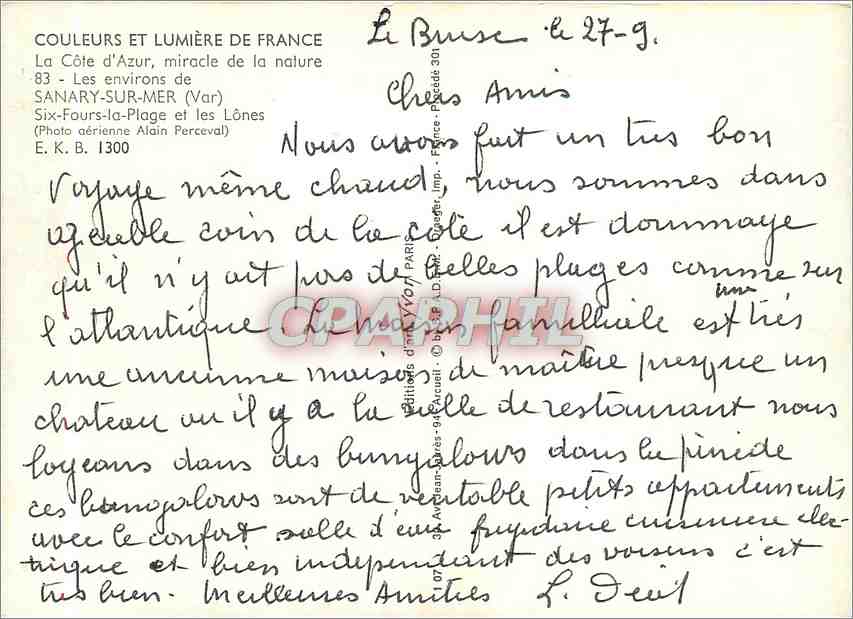 COULEURS ET LUMIÈRE DE FRANCE
La Côte d'Azur, miracle de la nature
83 - Les environs de
SANARY-SUR-MER (Var)
Six-Fours-la-Plage et les Lônes
(Photo aérienne Alain Perceval)
E. K. B. 1300
Le Brusc le 27-9.
Chers Amis
Nous avons fait un tres bon
voyage même chaud, nous sommes dans
agreable coin de la côte il est doummage
qu'il n'y ait pas de belles plages comme sur
l'atlantique. La maison familliale est très
une
une ancienne maison de maître presque un
chateau ou il y a la salle de restaurant nous
logeons dans des bungalows dans la pinède
ces bungalows sont de veritable petits appartements
avec le confort salle d'eau frigidaire cuisiniere elec-
trique et bien independant des voisins c'est
tres bien. Meilleures Amities L. Deuil
Editions d'art Yvon PARIS
Av. Jean-Jaurès - 94 Arcueil - © by S.P.A.D.E.M. - Draeger, Imp. - France - Procédé 301
CPARPHIL